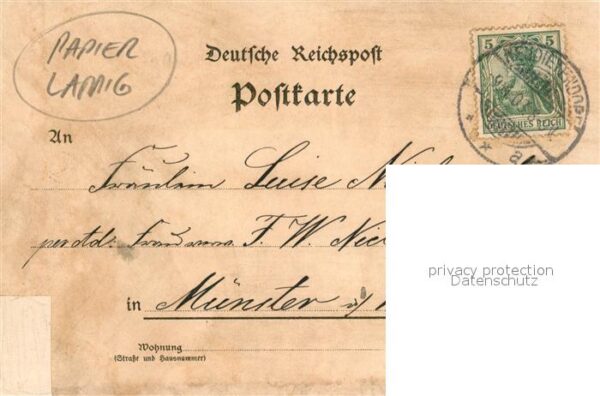 PAPIER
LAMIG
Deutsche Reichspost
Postkarte
5 5
DEUTSCHES REICH
An
Fräulein Luise
F. W.
in Münster i/
Wohnung
(Straße und Hausnummer)
privacy protection
Datenschutz